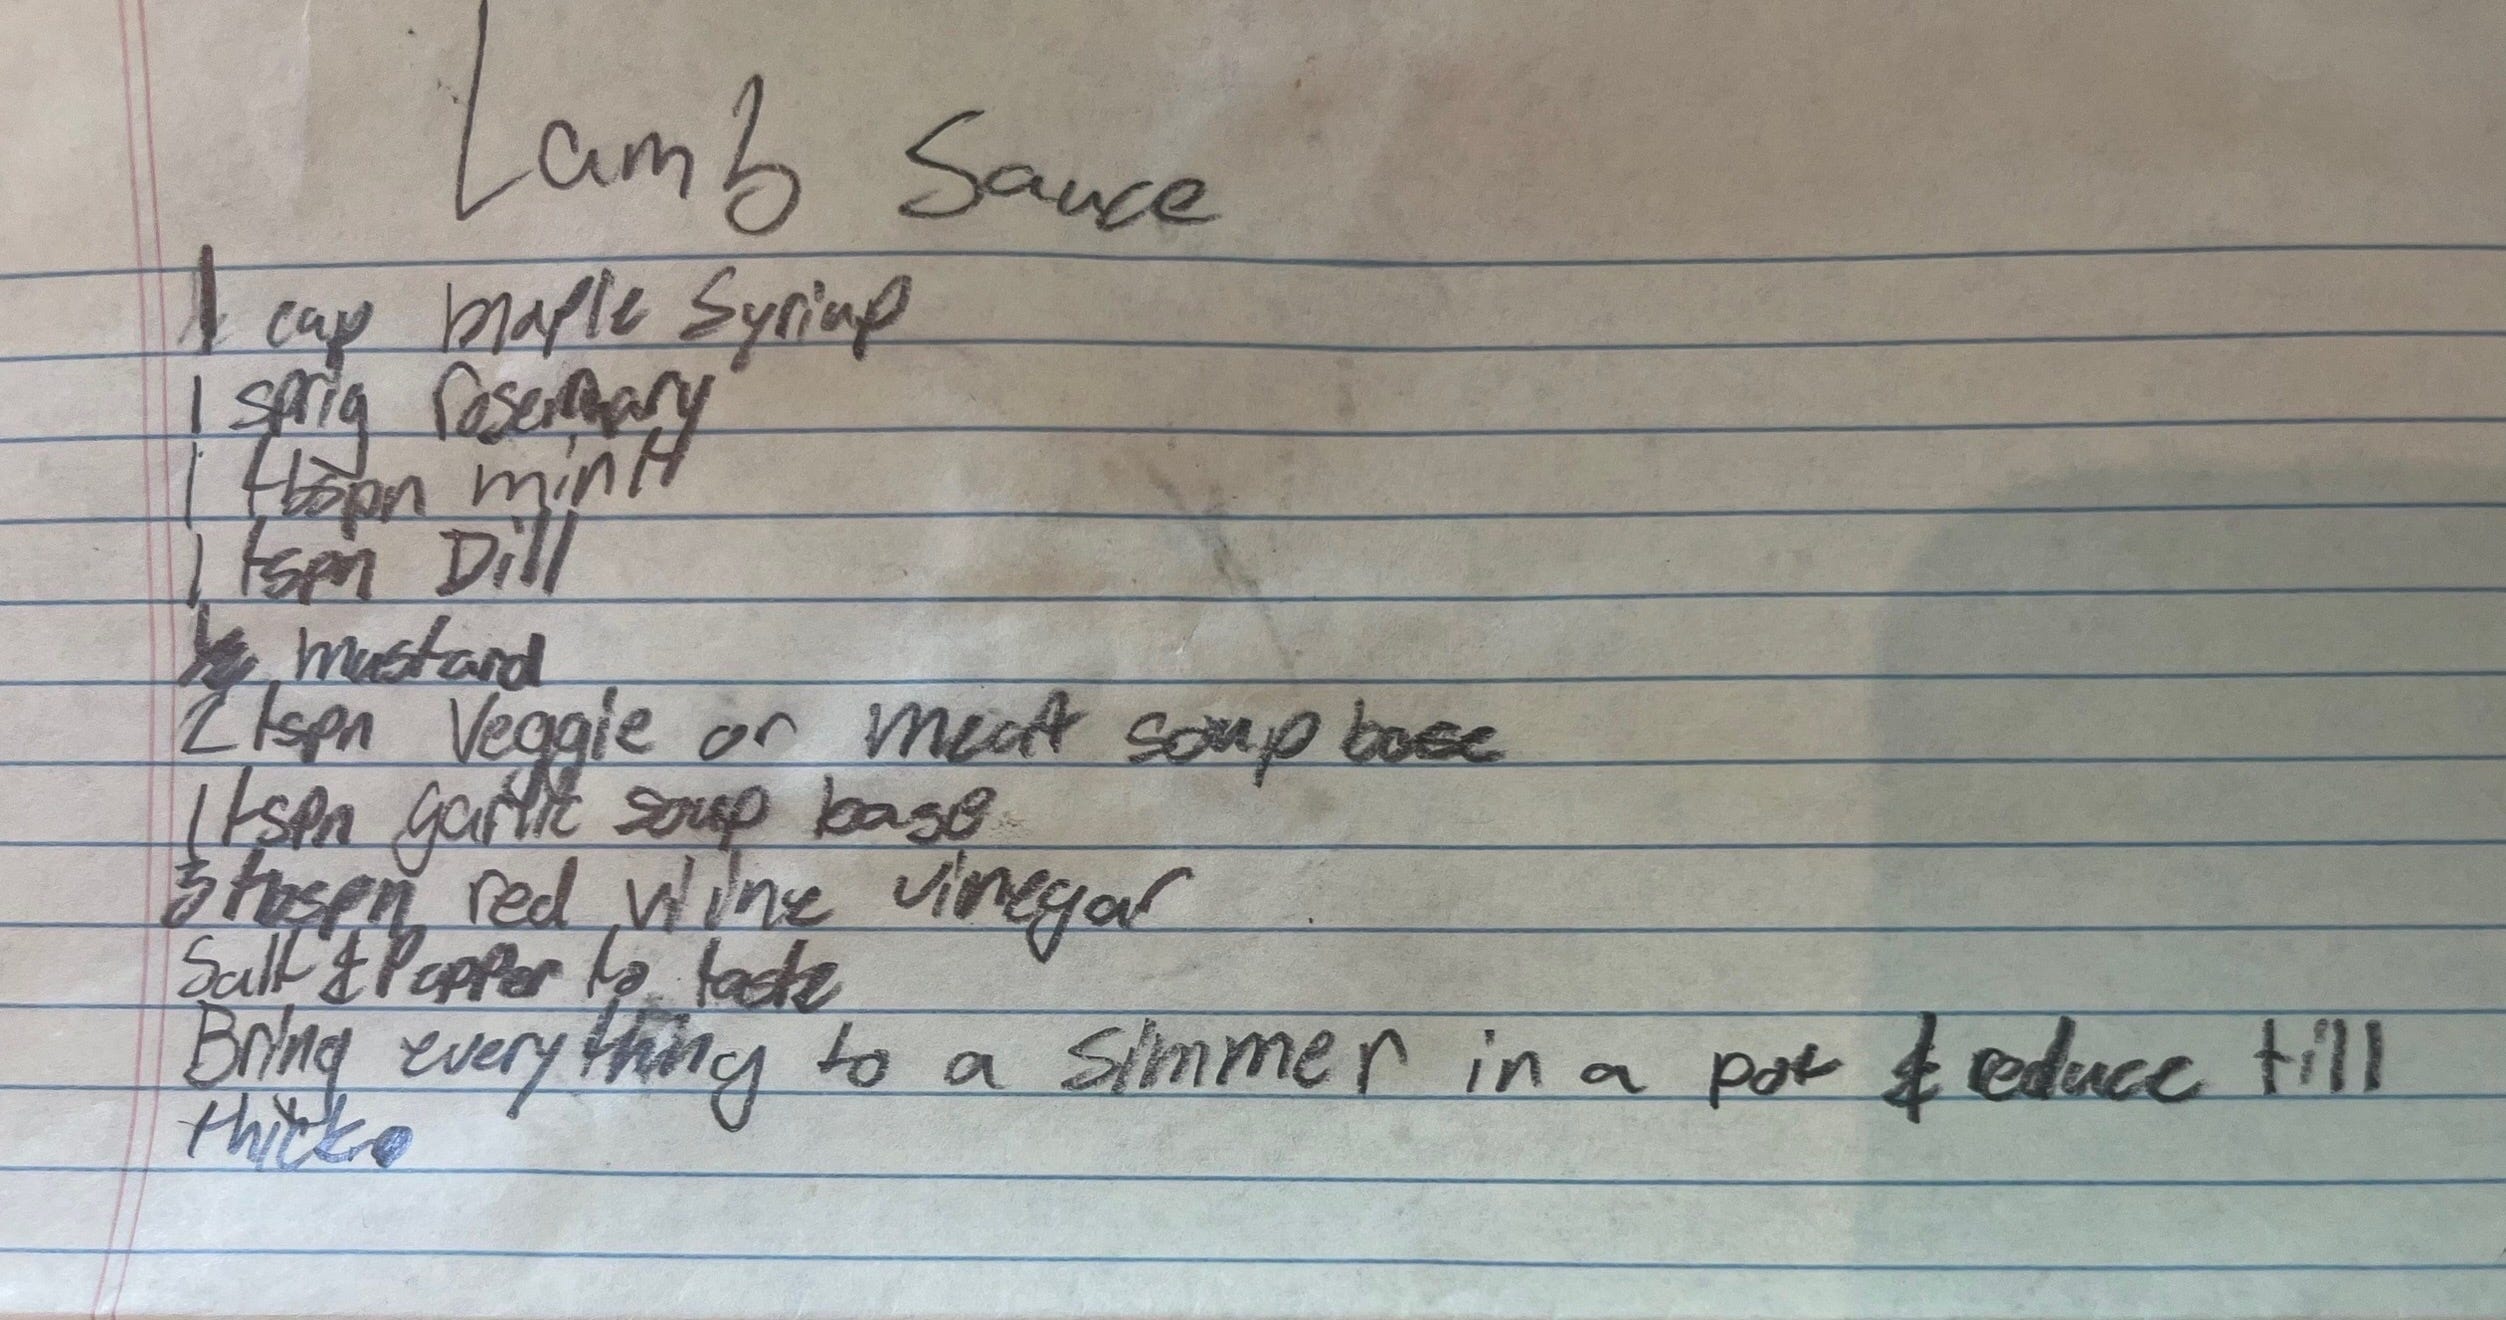 Lamb Sauce
1 cup maple Syriup
1 sprig rosemary
1 tbspn mint
1 tspn Dill
½ mustard
2 tspn Veggie or meat soup base
1 tspn garlic soup base
3 tbspn red wine vinegar
Salt & Pepper to taste
Bring everything to a simmer in a pot & reduce till
thick.